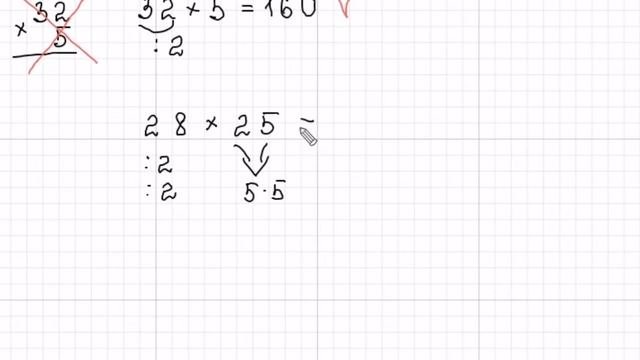 32
× 5
32 × 5 = 160 √
: 2
28 × 25 =
: 2
: 2 5 · 5